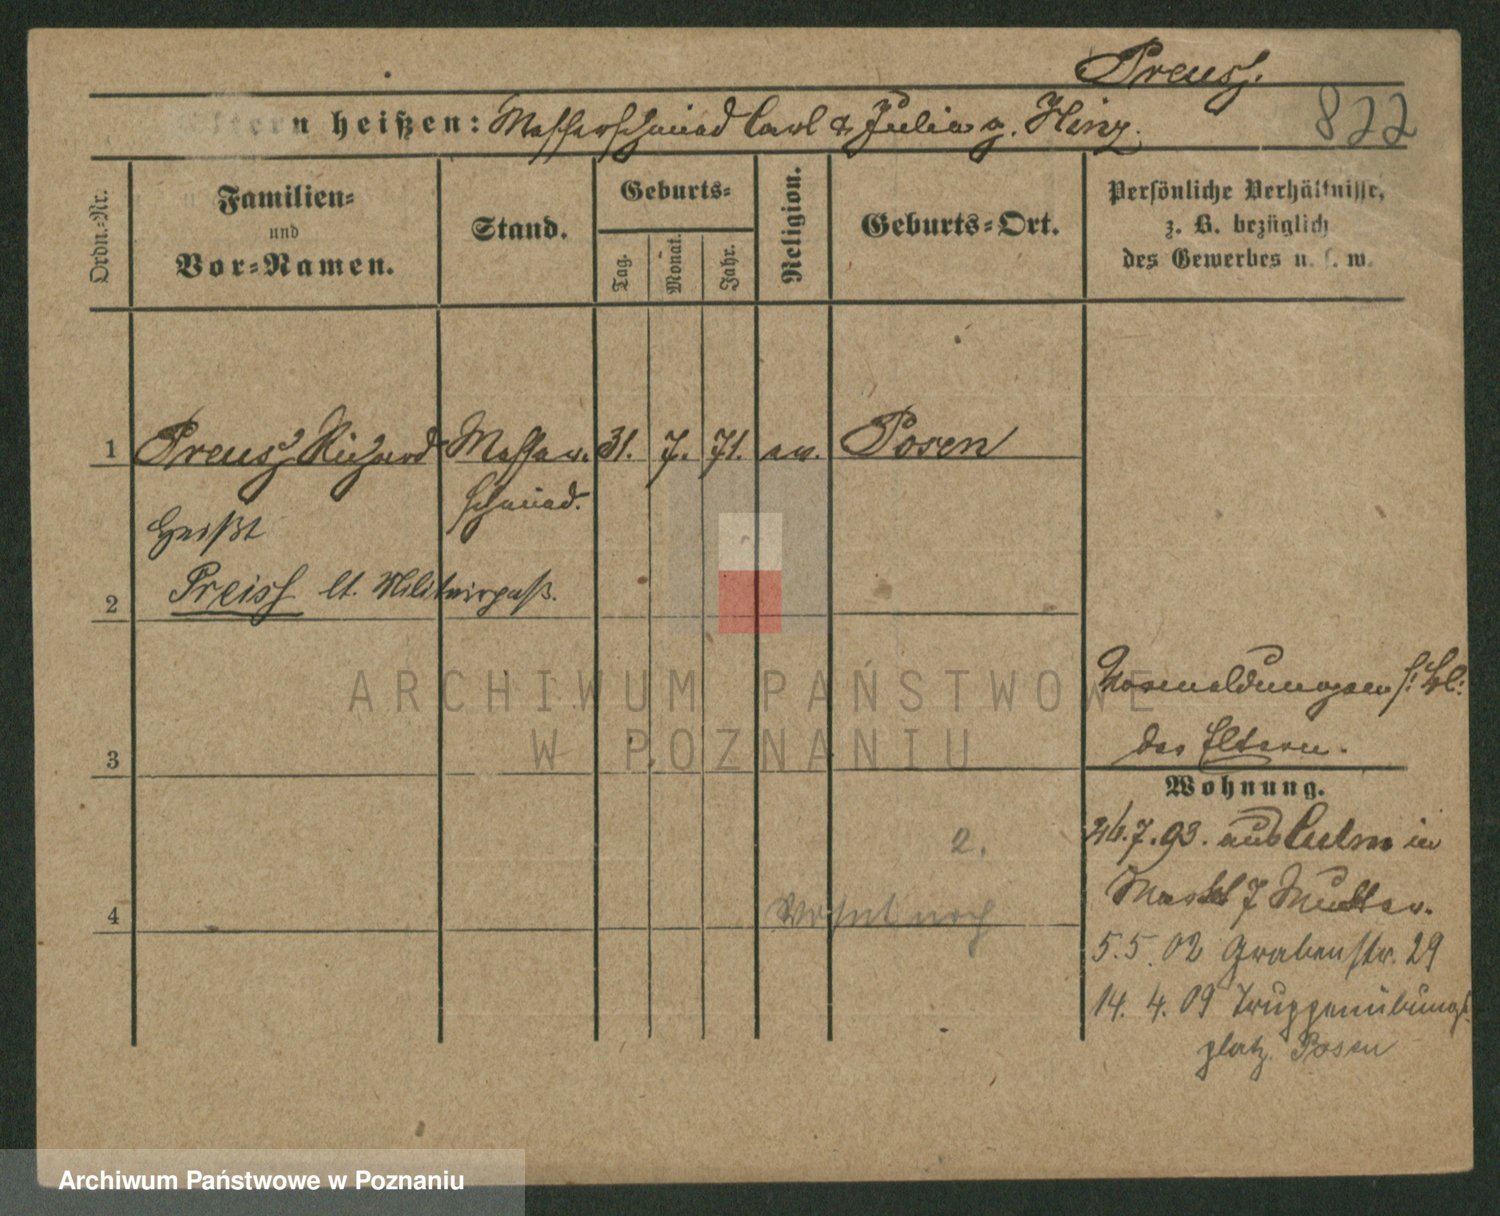 Preuss.
822
Eltern heißen: Messerschmied Carl & Julie g. Hinz.
Ordn.-Nr.
Familien-
und
Vor-Namen.
Stand.
Geburts-
Tag.
Monat.
Jahr.
Religion.
Geburts-Ort.
Persönliche Verhältnisse,
z. B. bezüglich
des Gewerbes u. s. w.
1 Preuss Richard Messer- 31. 7. 71. ev. Posen
schmied.
heißt
2 Preiss lt. Militairpaß.
Vormeldungen s. Bl.
der Eltern.
3
Wohnung.
26.7.93. aus Culm in
2.
Markt 7 Mutter.
4 Wohnt noch
5.5.02 Grabenstr. 29
14. 4. 09 Truppenübungs-
platz. Posen
ARCHIWUM PAŃSTWOWE
W POZNANIU
Archiwum Państwowe w Poznaniu